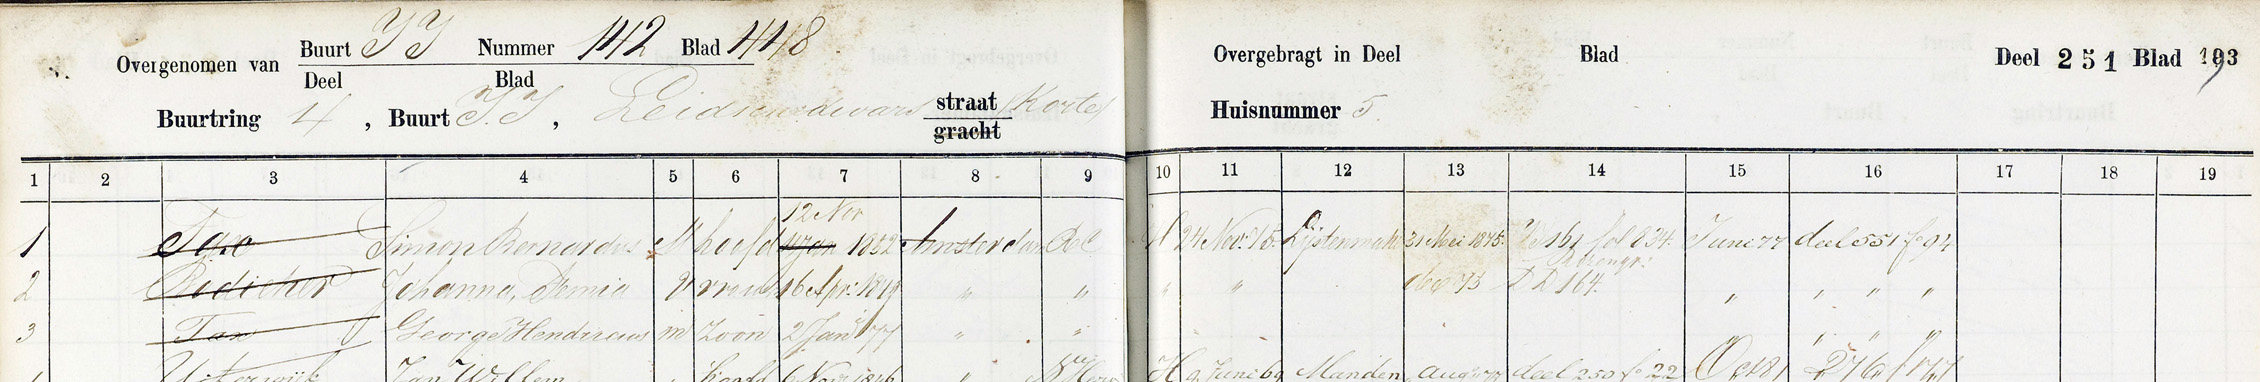 Overgenomen van Buurt JJ Nummer 142 Blad 448
Deel Blad
Buurtring 4, Buurt J.J, Leidschedwars straat (Korte)
gracht
Overgebragt in Deel Blad Deel 251 Blad 193
Huisnummer 5.
1 2 3 4 5 6 7 8 9 10 11 12 13 14 15 16 17 18 19
12 Nov
1 Tax Simon Bernardus M hoofd Jan 1852 Amsterdam RC H 24 Nov. 75. Lijstenmaker 31 Mei 1875. 161 fol 834. Juni 77 deel 551 fo 94
Rozengr.
2 Johanna V vrouw 16 Apr. 1849 " " " " dec 75 DD 164. " " " "
3 Tax George Hendricus m Zoon 2 Jan 77 " " " " "
Uiterwijk Jan Willem " hoofd 6 Nov 1846 " H 9 Juni 69 Manden Aug 77 deel 250 fo 22 Oct 81 276 f